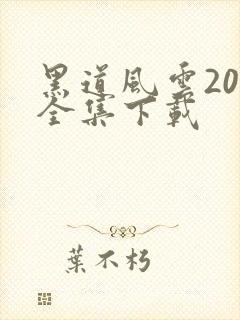 黑道風雲20
全集下載
葉不朽